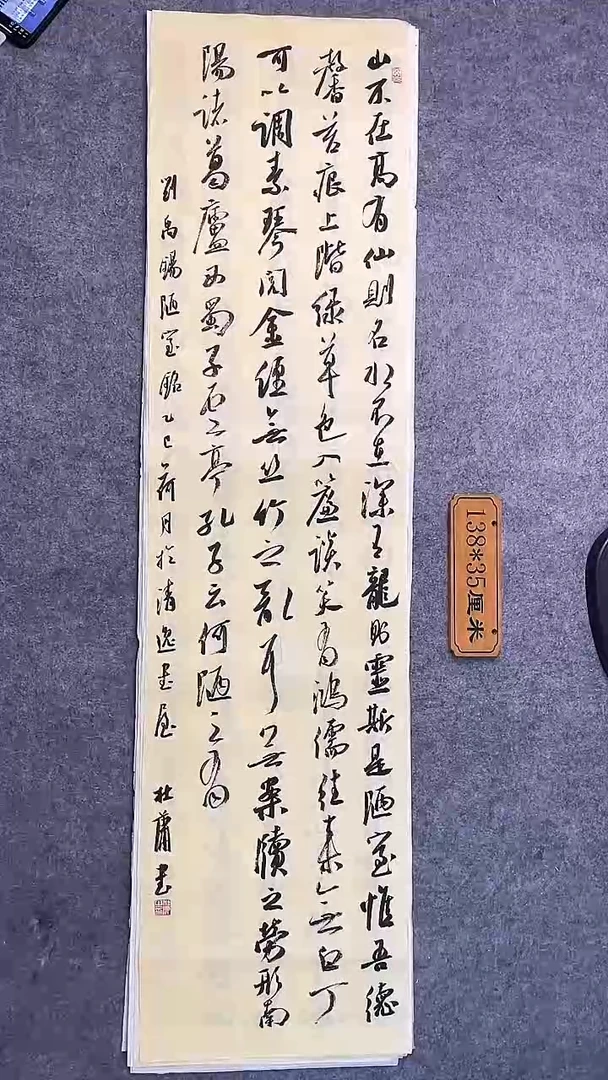 山不在高有仙則名水不在深有龍則靈斯是陋室惟吾德
馨苔痕上階绿草色入簾談笑有鴻儒往来無白丁
可以調素琴閱金經無丝竹之乱耳無案牘之勞形南
陽諸葛廬西蜀子云亭孔子云何陋之有
劉禹錫陋室銘乙巳荷月於清逸書屋
杜蕭書
138*35厘米